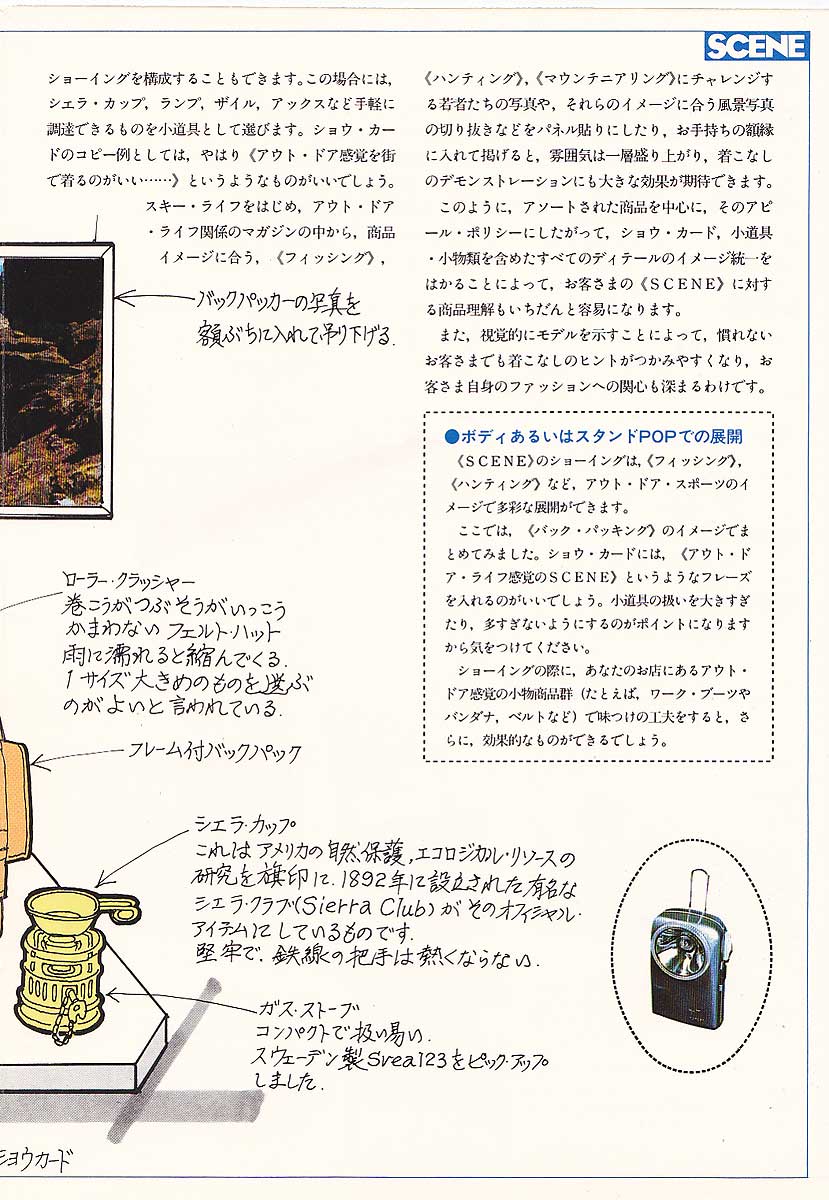 SCENE
ショーイングを構成することもできます。この場合には,
シエラ・カップ, ランプ, ザイル, アックスなど手軽に
調達できるものを小道具として選びます。ショウ・カー
ドのコピー例としては, やはり《アウト・ドア感覚を街
で着るのがいい……》というようなものがいいでしょう。
スキー・ライフをはじめ, アウト・ドア
・ライフ関係のマガジンの中から, 商品
イメージに合う, 《フィッシング》,
《ハンティング》,《マウンテニアリング》にチャレンジす
る若者たちの写真や, それらのイメージに合う風景写真
の切り抜きなどをパネル貼りにしたり, お手持ちの額縁
に入れて掲げると, 雰囲気は一層盛り上がり, 着こなし
のデモンストレーションにも大きな効果が期待できます。
このように, アソートされた商品を中心に, そのアピ
ール・ポリシーにしたがって, ショウ・カード, 小道具
・小物類を含めたすべてのディテールのイメージ統一を
はかることによって, お客さまの《SCENE》に対す
る商品理解もいちだんと容易になります。
また, 視覚的にモデルを示すことによって, 慣れない
お客さまでも着こなしのヒントがつかみやすくなり, お
客さま自身のファッションへの関心も深まるわけです。
バックパッカーの写真を
額ぶちに入れて吊り下げる.
●ボディあるいはスタンドPOPでの展開
《SCENE》のショーイングは,《フィッシング》,
《ハンティング》など, アウト・ドア・スポーツのイ
メージで多彩な展開ができます。
ここでは, 《バック・パッキング》のイメージでま
とめてみました。ショウ・カードには, 《アウト・ド
ア・ライフ感覚のSCENE》というようなフレーズ
を入れるのがいいでしょう。小道具の扱いを大きすぎ
たり, 多すぎないようにするのがポイントになります
から気をつけてください。
ショーイングの際に, あなたのお店にあるアウト・
ドア感覚の小物商品群 (たとえば, ワーク・ブーツや
バンダナ, ベルトなど) で味つけの工夫をすると, さ
らに, 効果的なものができるでしょう。
ローラー・クラッシャー
巻こうがつぶそうがいっこう
かまわない フェルト・ハット
雨に濡れると縮んでくる.
1サイズ大きめのものを選ぶ
のがよいと言われている.
フレーム付バックパック
シエラ・カップ
これはアメリカの自然保護, エコロジカル・リソースの
研究を旗印に. 1892年に設立された有名な
シエラ・クラブ(Sierra Club)がそのオフィシャル・
アイテムにしているものです.
堅牢で、鉄線の把手は熱くならない.
ガス・ストーブ
コンパクトで扱い易い.
スウェーデン製Svea123をピック・アップ
しました.
ショウカード